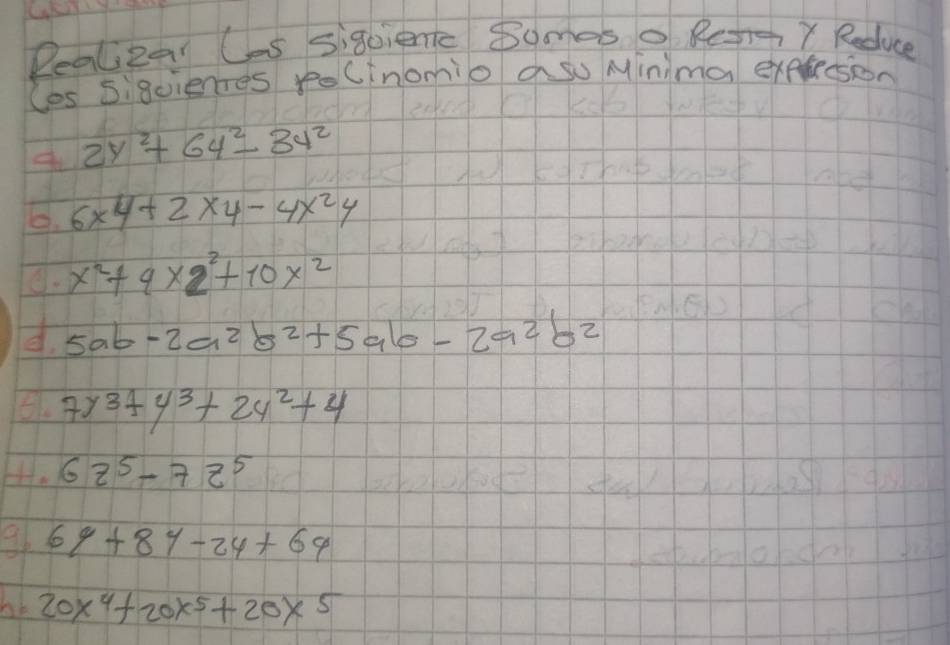 Realizar Las siguiente Sumas o Resta y Reduce
Los siguientes polinomio a su Minima expresion
a. 2y² + 6y² - 3y²
b. 6xy + 2xy - 4x²y
c. x² + 9x2² + 10x²
d. 5ab - 2a²b² + 5ab - 2a²b²
e. 7y³ + y³ + 2y² + 4
f. 6z⁵ - 7z⁵
g. 6y + 8y - 2y + 6y
h. 20x⁴ + 20x⁵ + 20x⁵